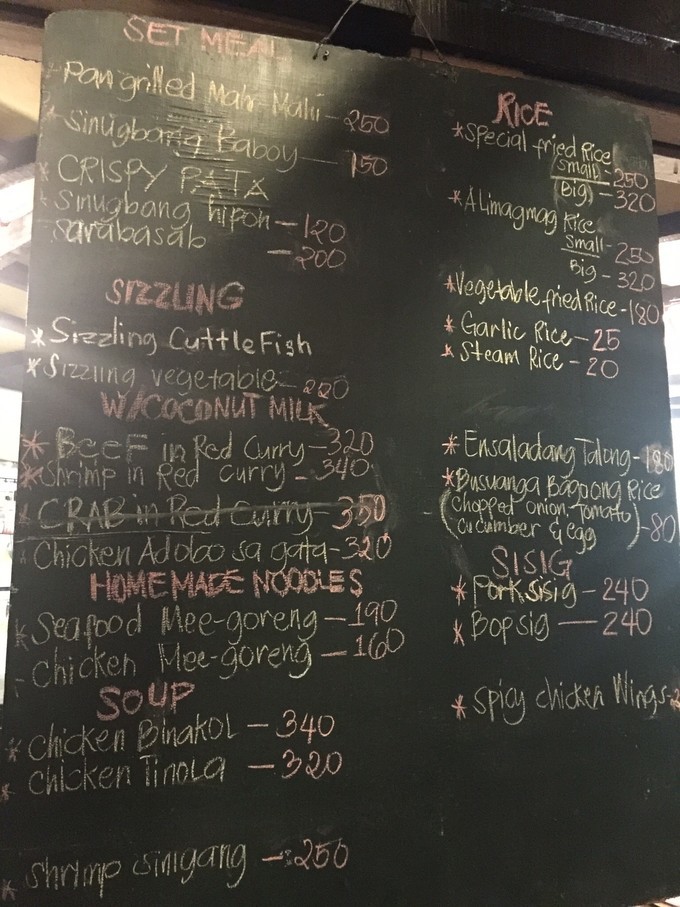 SET MEAL
Pan grilled Mahi Mahi - 250
* Sinugbang Baboy — 150
* CRISPY PATA
* Sinugbang hipon - 120
sarabasab - 200
SIZZLING
* Sizzling Cuttle Fish
* Sizzling vegetable - 220
W/COCONUT MILK
* BEEF in Red Curry - 320
* Shrimp in Red curry - 340
* CRAB in Red Curry - 350
* Chicken Adobo sa gata - 320
HOMEMADE NOODLES
* Seafood Mee-goreng - 190
- Chicken Mee-goreng - 160
SOUP
* Chicken Binakol - 340
* Chicken Tinola - 320
* Shrimp sinigang - 250
RICE
* Special fried Rice
(small) - 250
(Big) - 320
* Alimagmag Rice
Small - 250
Big - 320
* Vegetable fried Rice - 180
* Garlic Rice - 25
* Steam Rice - 20
* Ensaladang Talong - 180
* Busuanga Bagoong Rice
(chopped onion-Tomato
cucumber & egg) - 80
SISIG
* Pork sisig - 240
* Bopsig — 240
* Spicy chicken Wings -